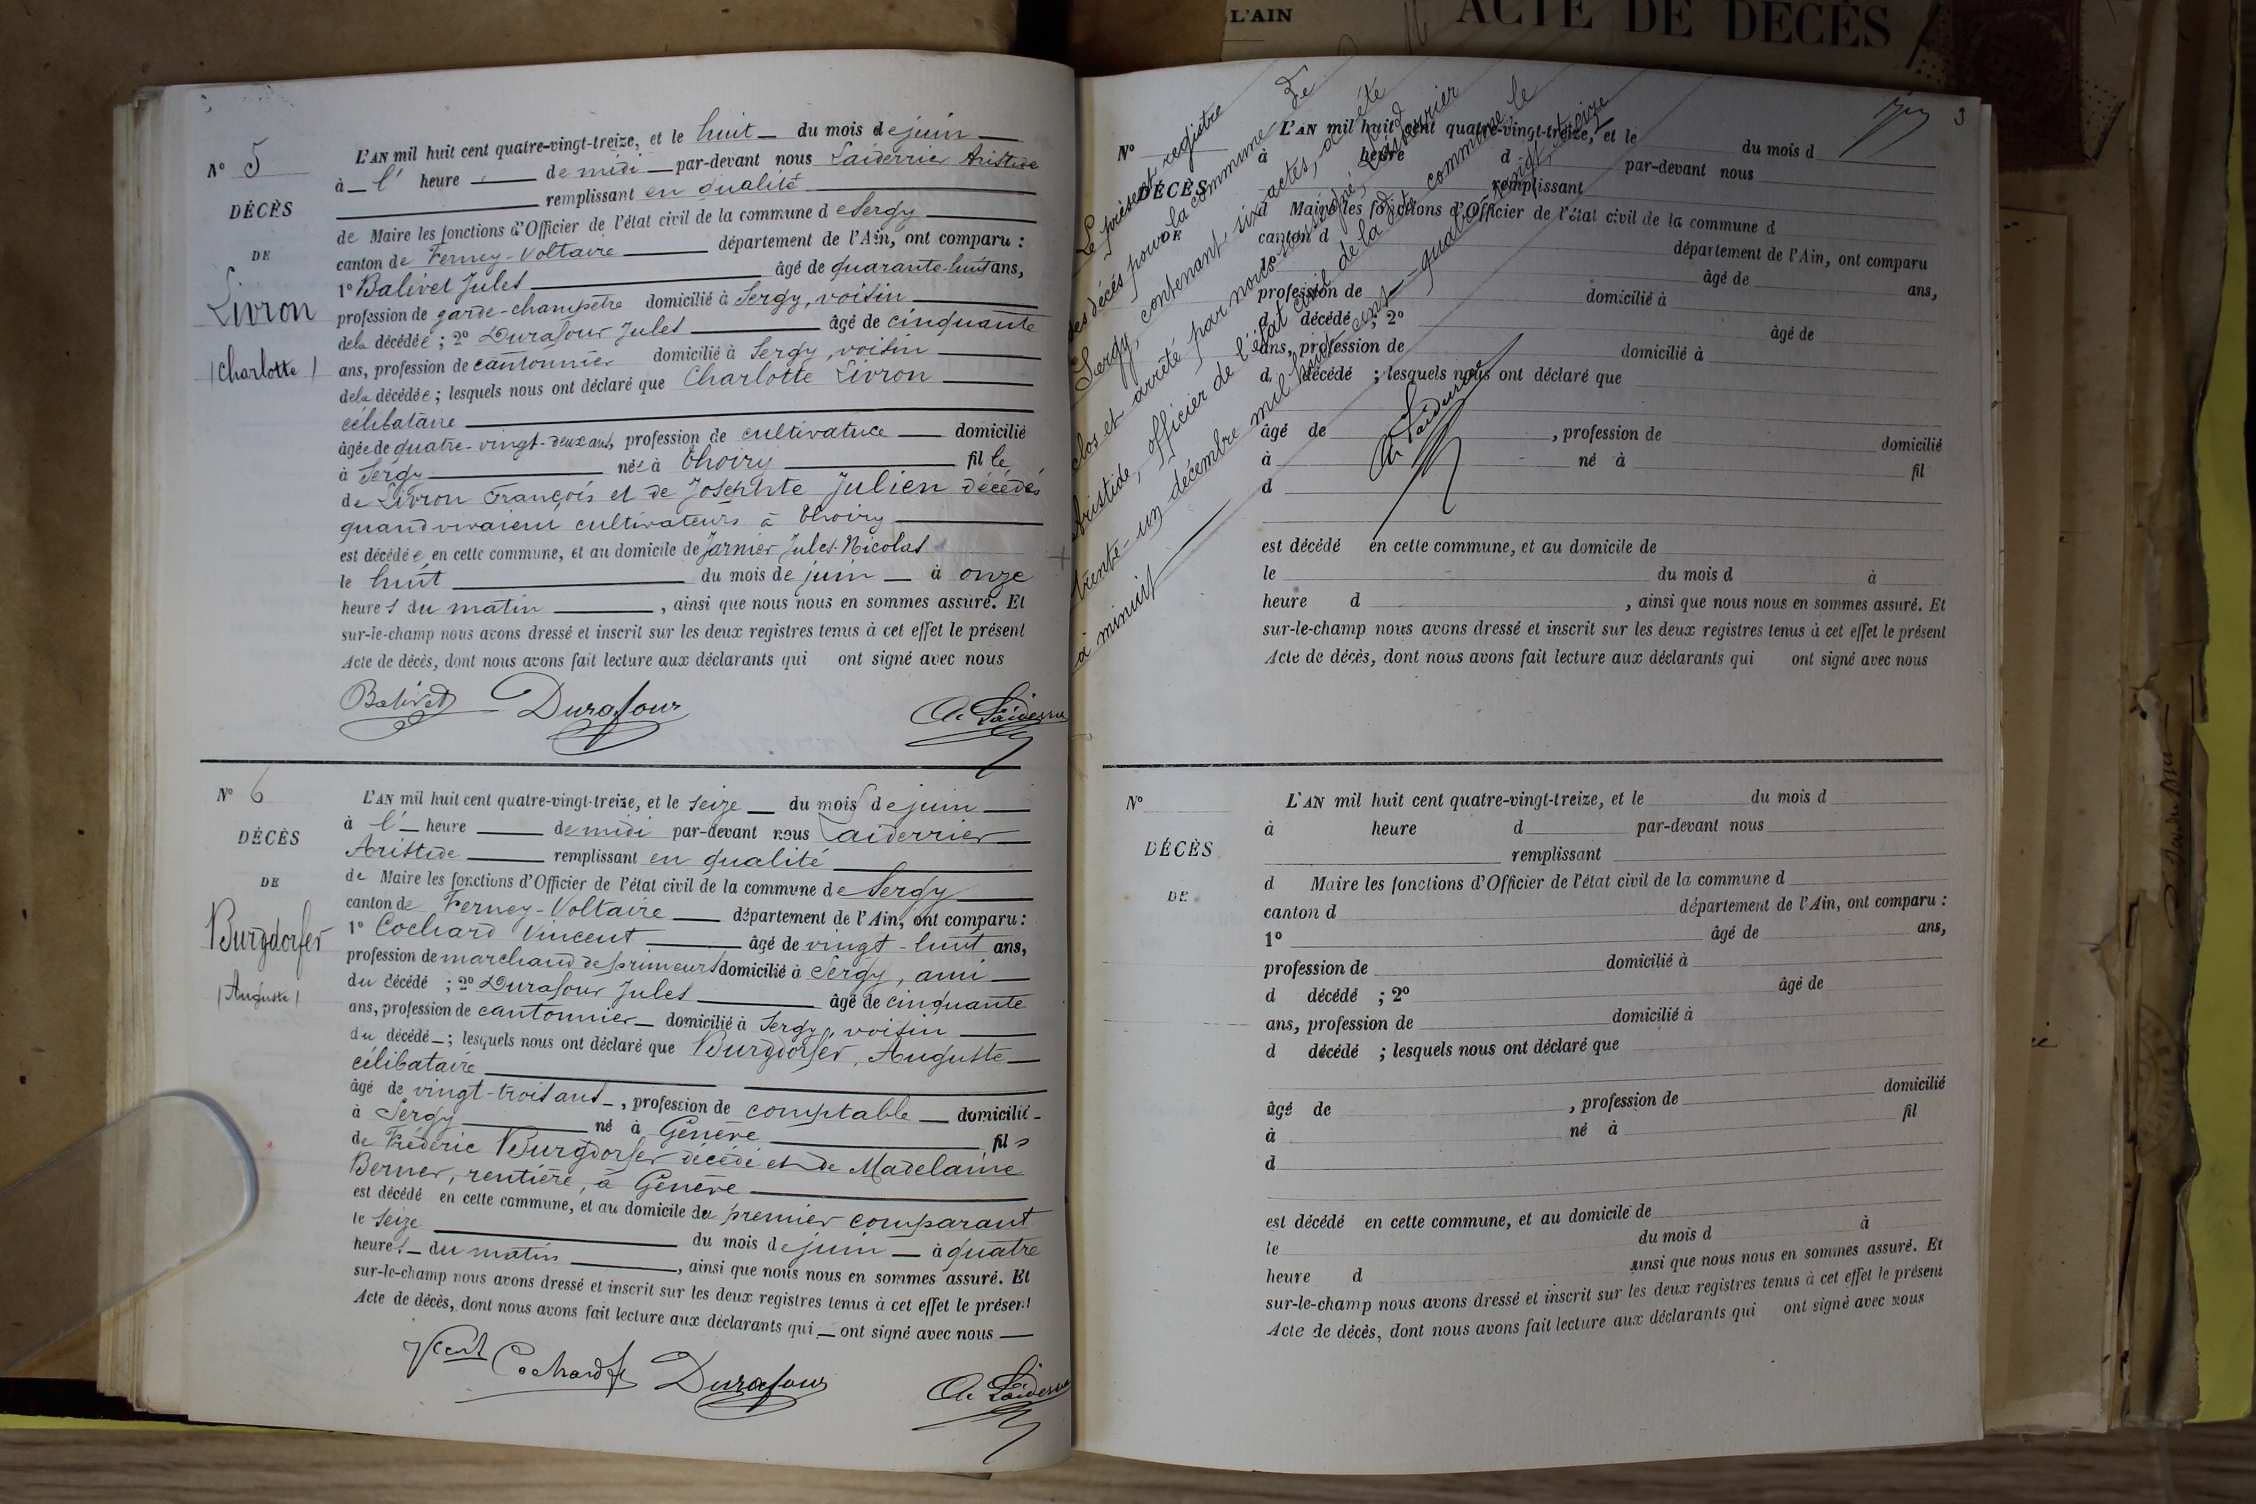 L'AIN
ACTE DE DÉCÈS
N° 5
DÉCÈS
DE
Livron
(Charlotte)
L'AN mil huit cent quatre-vingt-treize, et le huit du mois de juin
à l' heure de midi par-devant nous Laiderrier Aristide
remplissant en qualité
de Maire les fonctions d'Officier de l'état civil de la commune de Sergy
canton de Ferney-Voltaire département de l'Ain, ont comparu :
1° Balivet Jules âgé de quarante-huit ans,
profession de garde-champêtre domicilié à Sergy, voisin
de la décédée ; 2° Durafour Jules âgé de cinquante
ans, profession de cantonnier domicilié à Sergy, voisin
de la décédée ; lesquels nous ont déclaré que Charlotte Livron
célibataire
âgée de quatre-vingt-deux ans, profession de cultivatrice domicilié
à Sergy née à Thoiry fille
de Livron François et de Josephte Julien décédés
quand vivaient cultivateurs à Thoiry
est décédée en cette commune, et au domicile de Jarnier Jules-Nicolas
le huit du mois de juin à onze
heures du matin, ainsi que nous nous en sommes assuré. Et
sur-le-champ nous avons dressé et inscrit sur les deux registres tenus à cet effet le présent
Acte de décès, dont nous avons fait lecture aux déclarants qui ont signé avec nous
Balivet Durafour A. Laiderrier
N° 6
DÉCÈS
DE
Burgdorfer
(Auguste)
L'AN mil huit cent quatre-vingt-treize, et le seize du mois de juin
à l' heure de midi par-devant nous Laiderrier
Aristide remplissant en qualité
de Maire les fonctions d'Officier de l'état civil de la commune de Sergy
canton de Ferney-Voltaire département de l'Ain, ont comparu :
1° Cochard Vincent âgé de vingt-huit ans,
profession de marchand de primeurs domicilié à Sergy, ami
du décédé ; 2° Durafour Jules âgé de cinquante
ans, profession de cantonnier domicilié à Sergy, voisin
du décédé ; lesquels nous ont déclaré que Burgdorfer, Auguste
célibataire
âgé de vingt-trois ans, profession de comptable domicilié
à Sergy né à Genève fils
de Frédéric Burgdorfer décédé et de Madelaine
Berner, rentière, à Genève
est décédé en cette commune, et au domicile du premier comparant
le seize du mois de juin à quatre
heures du matin, ainsi que nous nous en sommes assuré. Et
sur-le-champ nous avons dressé et inscrit sur les deux registres tenus à cet effet le présent
Acte de décès, dont nous avons fait lecture aux déclarants qui ont signé avec nous
Cochard Durafour A. Laiderrier
3
Le présent registre
des décès pour la commune de
Sergy, contenant six actes, a été
clos et arrêté par nous soussigné, Laiderrier
Aristide, officier de l'état civil de la dite commune, le
trente-un décembre mil huit cent quatre-vingt-treize
à minuit
A. Laiderrier
N°
DÉCÈS
DE
L'AN mil huit cent quatre-vingt-treize, et le du mois d
à heure d par-devant nous
remplissant
d Maire les fonctions d'Officier de l'état civil de la commune d
canton d département de l'Ain, ont comparu
1° âgé de ans,
profession de domicilié à
d décédé ; 2° âgé de
ans, profession de domicilié à
d décédé ; lesquels nous ont déclaré que
âgé de , profession de domicilié
à né à fil
d
est décédé en cette commune, et au domicile de
le du mois d à
heure d , ainsi que nous nous en sommes assuré. Et
sur-le-champ nous avons dressé et inscrit sur les deux registres tenus à cet effet le présent
Acte de décès, dont nous avons fait lecture aux déclarants qui ont signé avec nous
N°
DÉCÈS
DE
L'AN mil huit cent quatre-vingt-treize, et le du mois d
à heure d par-devant nous
remplissant
d Maire les fonctions d'Officier de l'état civil de la commune d
canton d département de l'Ain, ont comparu :
1° âgé de ans,
profession de domicilié à
d décédé ; 2° âgé de
ans, profession de domicilié à
d décédé ; lesquels nous ont déclaré que
âgé de , profession de domicilié
à né à fil
d
est décédé en cette commune, et au domicile de
le du mois d à
heure d ainsi que nous nous en sommes assuré. Et
sur-le-champ nous avons dressé et inscrit sur les deux registres tenus à cet effet le présent
Acte de décès, dont nous avons fait lecture aux déclarants qui ont signé avec nous